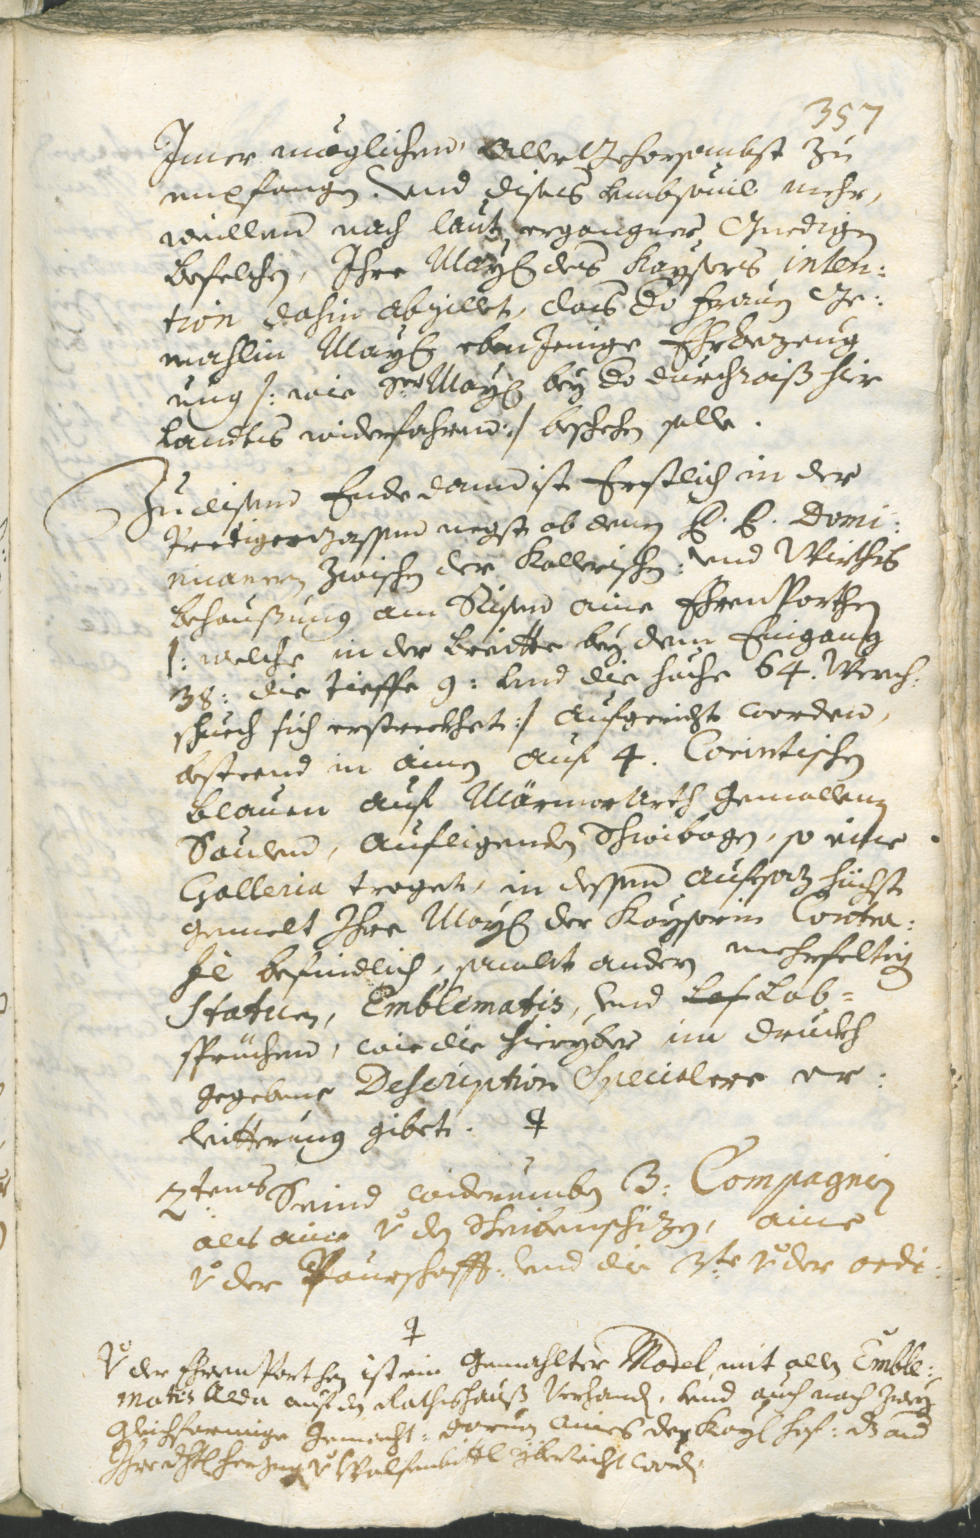 357
Imer möglichen aller Gehorsambst zu
empfangen. Und dises umbsouil mehr,
weillen nach laut ergangner Gnedigen
befelchen, Ihre May: des Kaysers inten:
tion dahin abzillet, das do frauen Ge:
mahlin May: eben Jenige Ehrbezeug
ung /: wie Sr May: bey do durchraiß hie
landts widerfahren :/ beschehen solle.
Zu disem Ende dann ist Erstlich in der
Predigergassen negst ob denen P. P. Domi:
nicanern zwischen der Kollerischen: und Wirths
behaußung am Eisen aine Ehren Porthen
/: welche in der breitte bey dem Eingang
38: die tieffe 9: und die höche 64. Werch:
schuech sich erstreckhet :/ aufgericht worden,
bestend in ainen auf 4. Corintischen
blauen auf Märmor Arth gemallenen
Saulen, aufligenden Schwibogen, so eine
Galleria traget, in dessen aufsaz höchst
gemelt Ihre May: der Kayserin Contra:
fe befindlich, sambt andern mehrfeltig
Statuen, Emblematis, und Lob=
sprüchen, wie die hieryber im druckh
gegebene Description Specialere er:
leitterung gibet.
2tens Seind widerumben 3: Compagnien
als aine v den Scheibenschizen, aine
v der Paurschafft: und die 3te v der ordi:
V der Ehren Porthen ist ein gemahlter Model mit allen Emble:
matis Alda auf den Rathshauß Verhanden, und auch noch zwey
gleichformige gemacht: daruon aines den Kay: hof: dz and
Ihre dhl: herzog v Wolfenbittl yberreicht worden